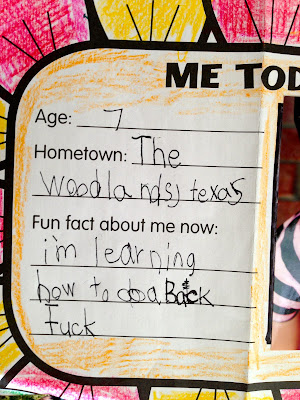 ME TOD
Age: 7
Hometown: The
woodlands, texas
Fun fact about me now:
i'm learning
how to do a Back
Fuck